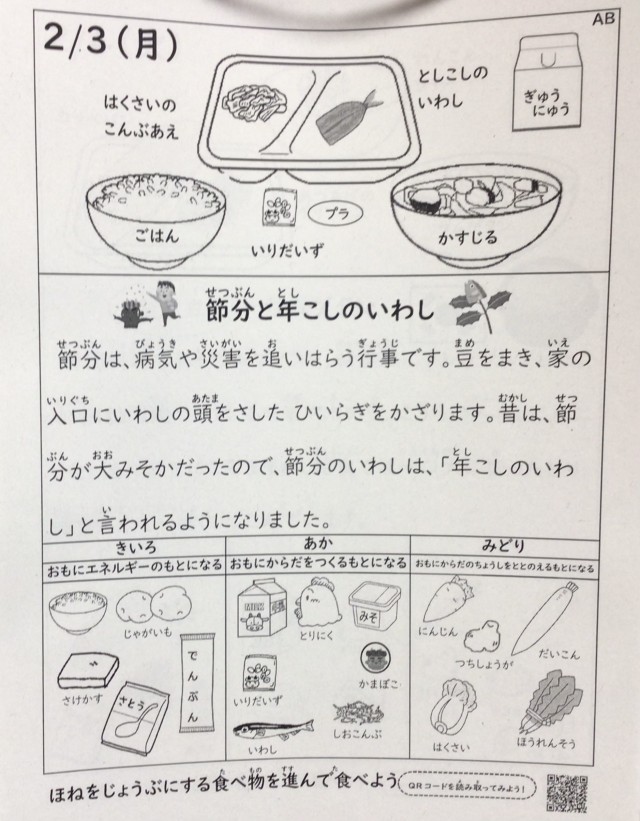 AB
2/3(月)
はくさいの
こんぶあえ
としこしの
いわし
ぎゅう
にゅう
ごはん
プラ
いりだいず
かすじる
節分と年こしのいわし
節分は、病気や災害を追いはらう行事です。豆をまき、家の
入口にいわしの頭をさした ひいらぎをかざります。昔は、節
分が大みそかだったので、節分のいわしは、「年こしのいわ
し」と言われるようになりました。
きいろ
おもにエネルギーのもとになる
じゃがいも
さけかす
でんぷん
さとう
あか
おもにからだをつくるもとになる
MILK
とりにく
みそ
いりだいず
かまぼこ
いわし
しおこんぶ
みどり
おもにからだのちょうしをととのえるもとになる
にんじん
つちしょうが
だいこん
はくさい
ほうれんそう
ほねをじょうぶにする食べ物を進んで食べよう
QRコードを読み取ってみよう!